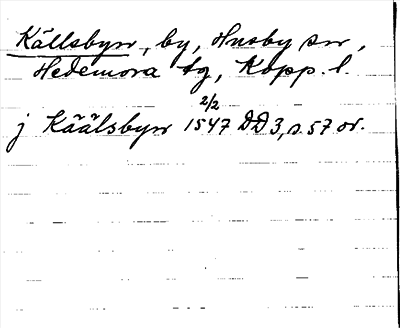 Källsbyn, by, Husby sn,
Hedemora tg, Kopp. l.
j Käälsbyn 1547 2/2 DD 3, s. 57 or.